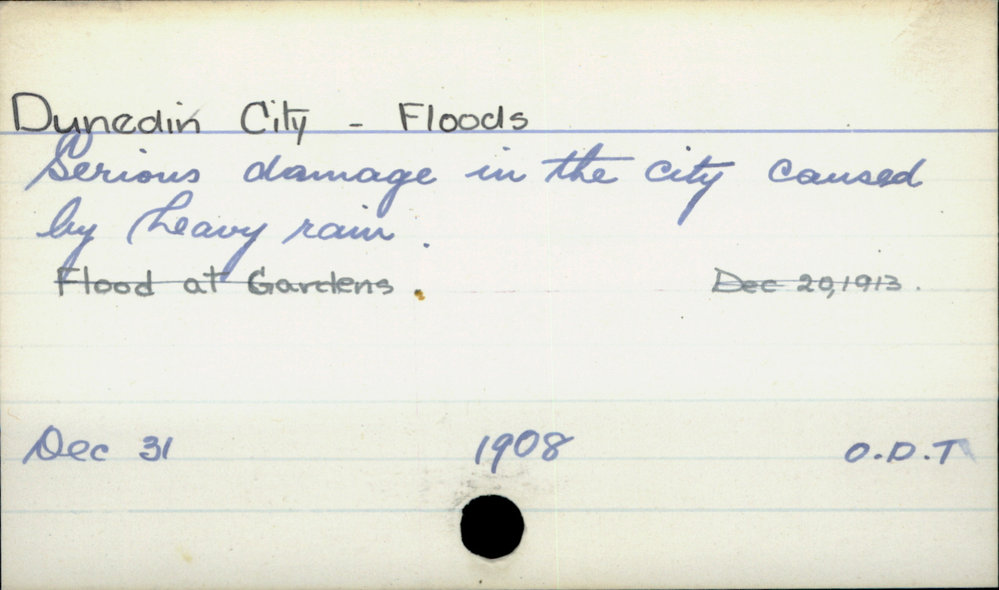 Dunedin City - Floods
Serious damage in the city caused
by heavy rain.
Flood at Gardens. Dec 20, 1913.
Dec 31 1908 O.D.T